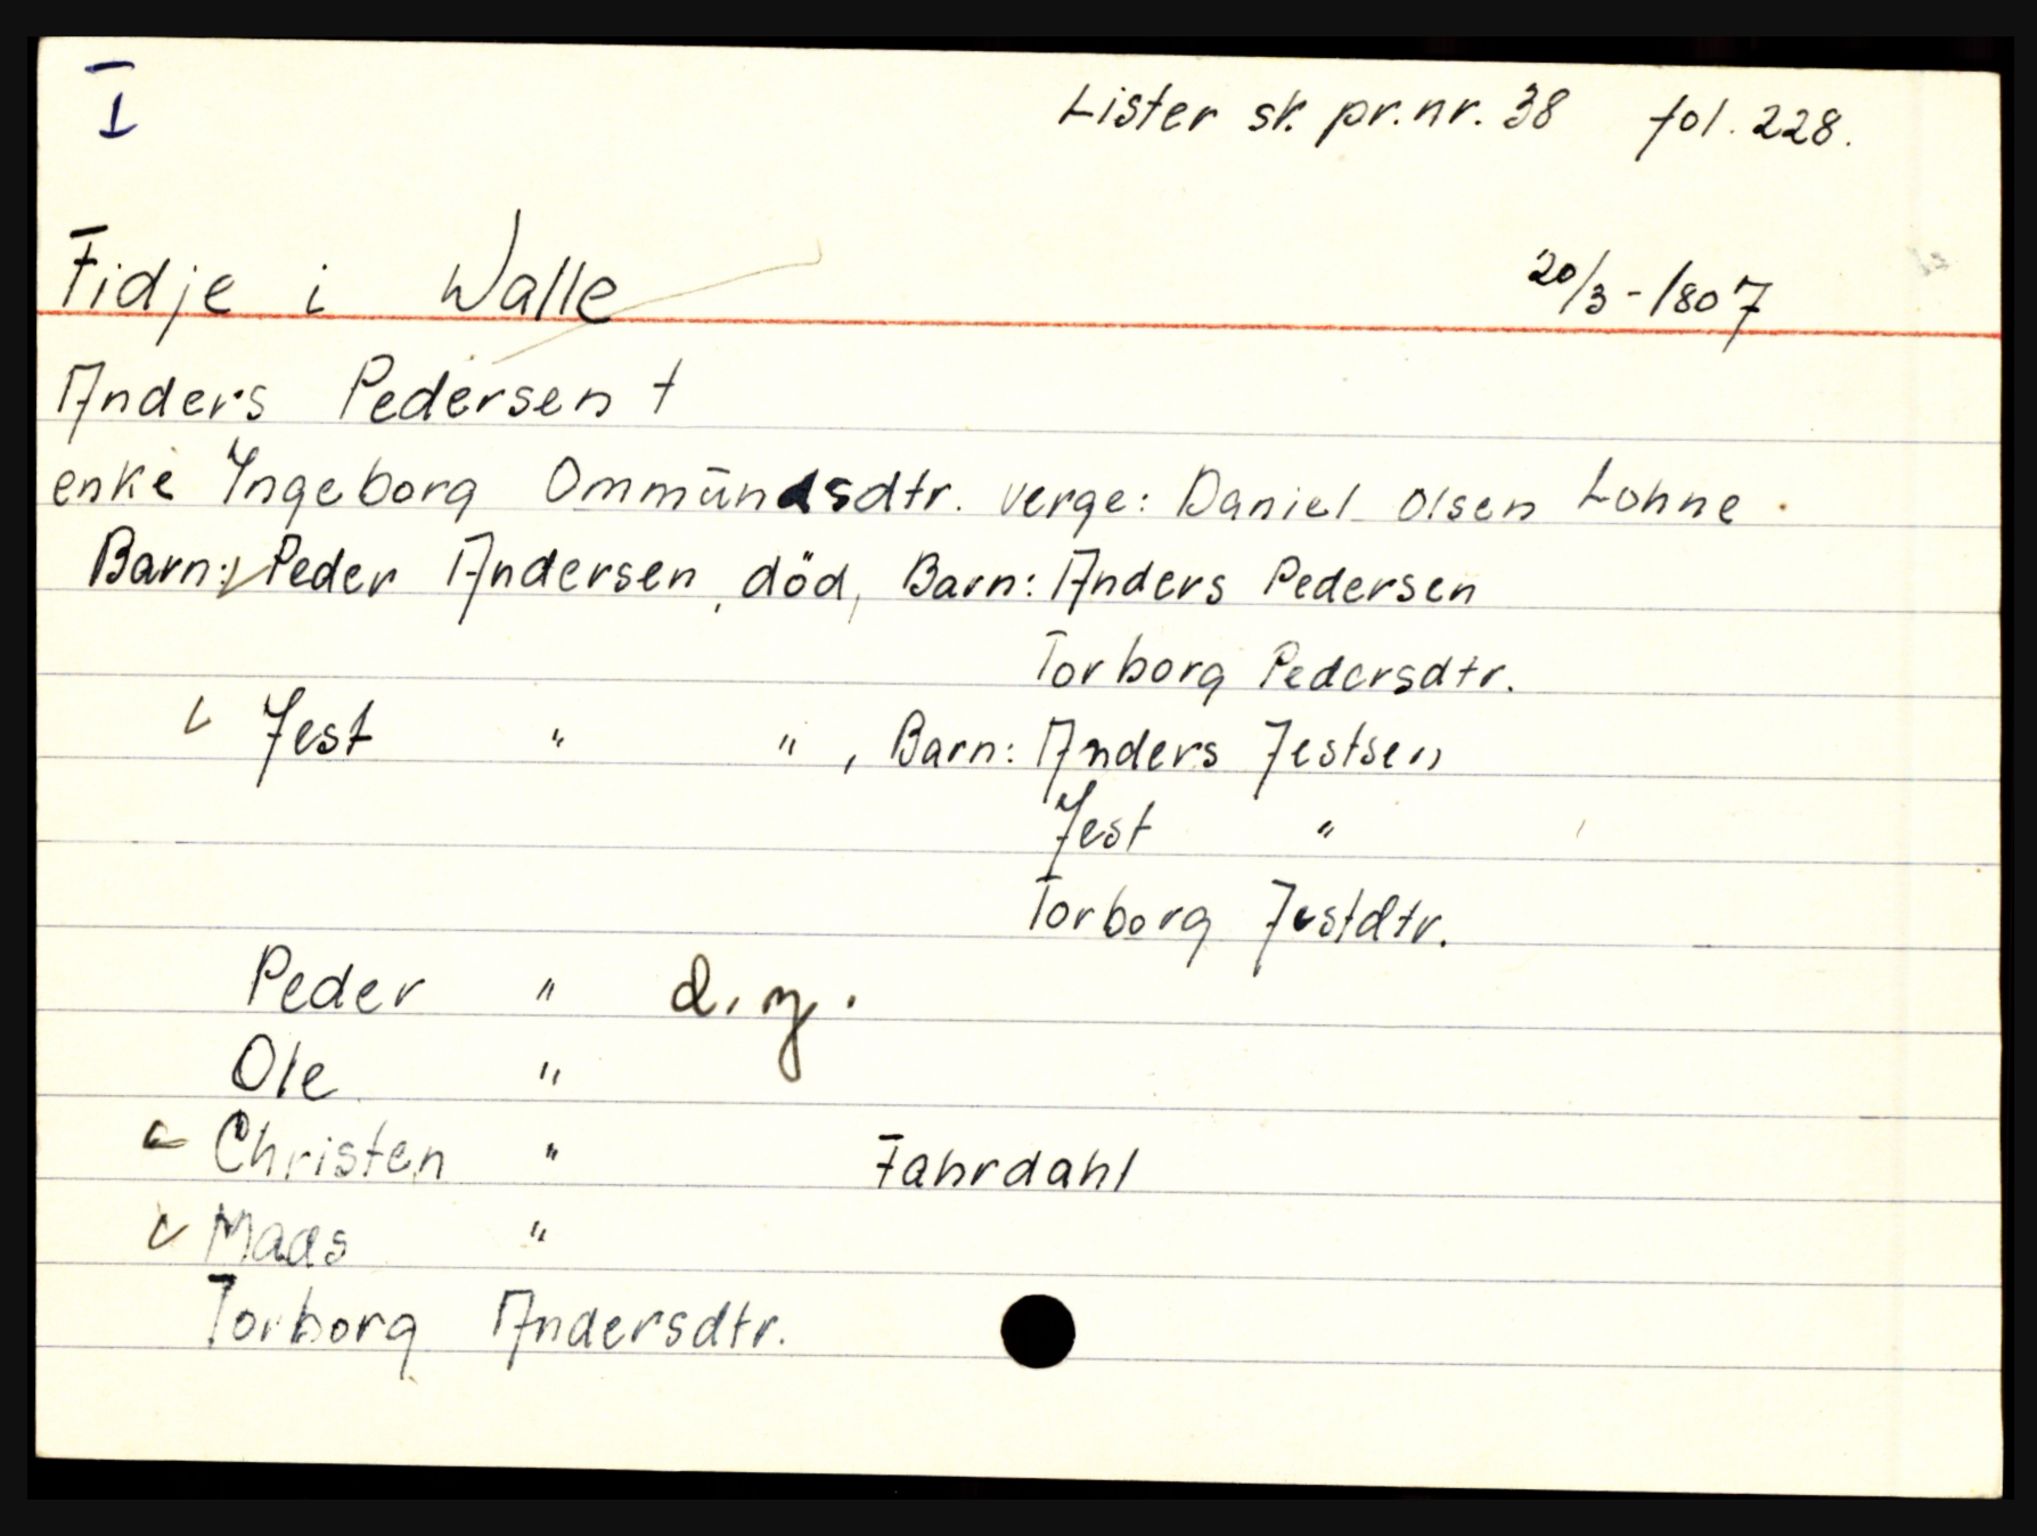 I
Lister sk. pr. nr. 38 fol. 228.
Fidje i Walle 20/3 - 1807
Anders Pedersen †
enke Ingeborg Ommŭndsdtr. verge: Daniel Olsen Lohne
Barn: ✓ Peder Andersen, död, Barn: Anders Pedersen
Torborg Pedersdtr.
✓ Jest " " , Barn: Anders Jestsen
Jest "
Torborg Jestdtr.
Peder " d. y.
Ole "
✓ Christen " Fahrdahl
✓ Mads "
Torborg Andersdtr.